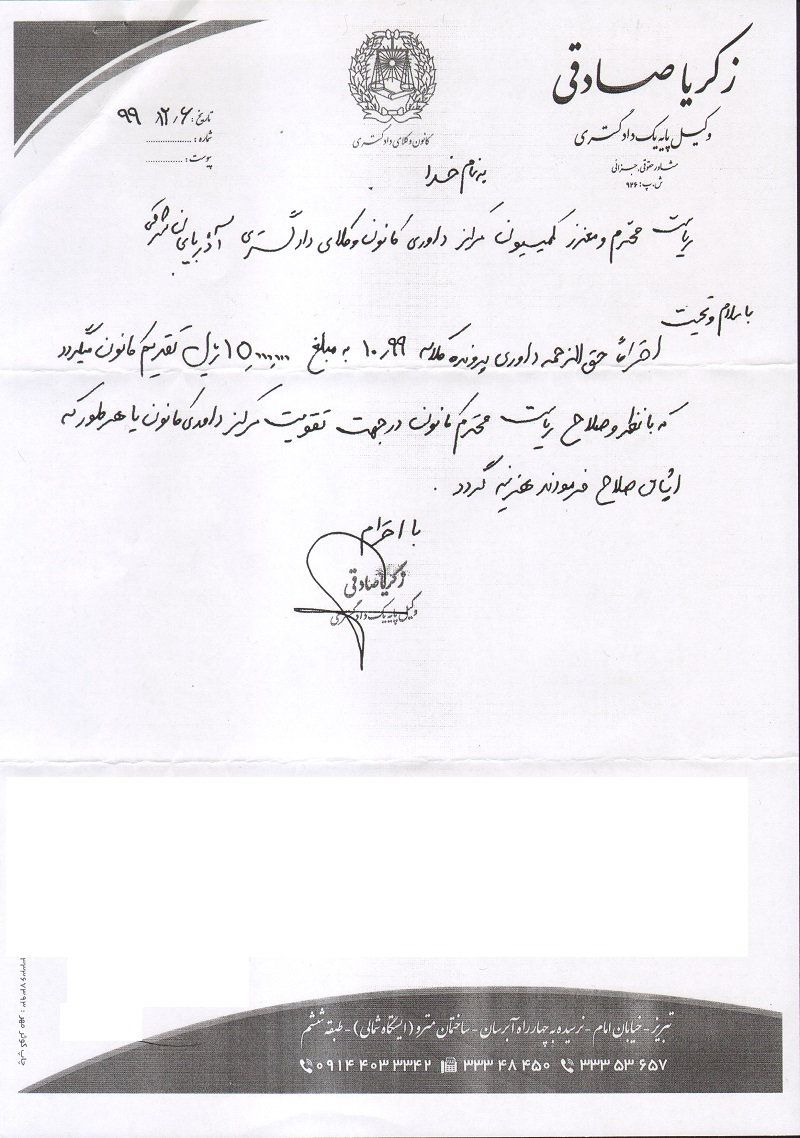 زکریا صادقی
وکیل پایه یک دادگستری
مشاور حقوقی، جزائی
ش.پ: ۹۲۶
کانون وکلای دادگستری
تاریخ: ۹۹/۲/۶
شماره:
پیوست:
به نام خدا
ریاست محترم و معزز کمیسیون مرکز داوری کانون وکلای دادگستری آذربایجان شرقی
با سلام و تحیت
احتراماً حق الزحمه داوری پرونده کلاسه ۱۰٫۹۹ به مبلغ ۱۵٫۰۰۰٫۰۰۰ ریال تقدیم کانون میگردد
که با نظر و صلاح ریاست محترم کانون در جهت تقویت مرکز داوری کانون یا هر طور که
ایشان صلاح فرمودند هزینه گردد.
با احترام
زکریا صادقی
وکیل پایه یک دادگستری
تبریز - خیابان امام - نرسیده به چهارراه آبرسان - ساختمان مترو (ایستگاه شمالی) - طبقه ششم
۳۳۳ ۵۳ ۶۵۷ ۳۳۳ ۴۸ ۴۵۰ ۰۹۱۴ ۴۰۳ ۳۳۴۲